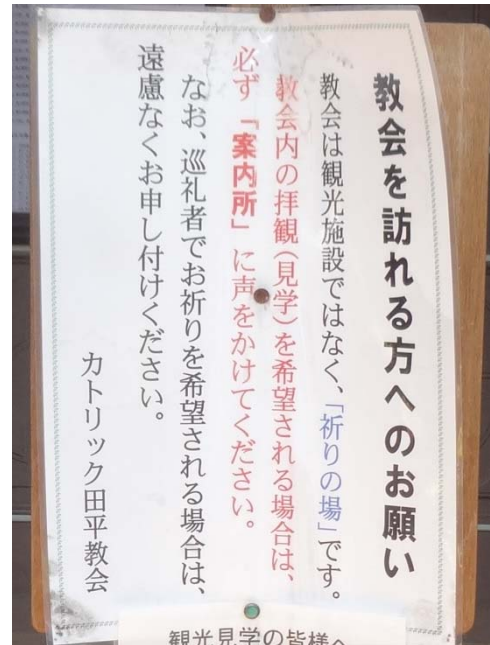 教会を訪れる方へのお願い
教会は観光施設ではなく、「祈りの場」です。
教会内の拝観(見学)を希望される場合は、
必ず「案内所」に声をかけてください。
なお、巡礼者でお祈りを希望される場合は、
遠慮なくお申し付けください。
カトリック田平教会
観光見学の皆様へ